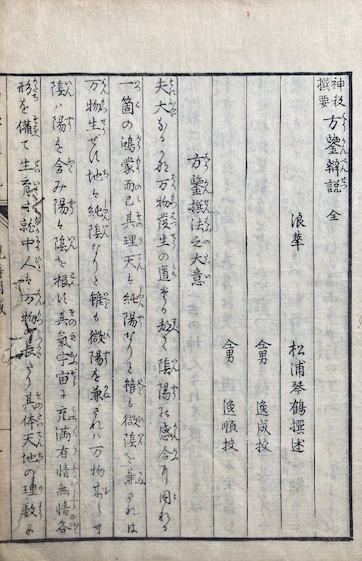 神殺撰要 方鑒辯説 全
浪華 松浦琴鶴撰述
仝男 逸成挍
仝男 逸順挍
方鑒撰法之大意
夫大なる哉万物發生の道其る起陰陽於感合有因れる
一箇の鴻蒙而已其理天も純陽なりと雖も微陰を兼されは
万物生せす地も純陰なりと雖も微陽を兼されハ万物
陰ハ陽を含み陽ハ陰を根に其氣宇宙に充滿有情無情各
形を備て生育す就中人ハ万物の長たり其体天地の理数に